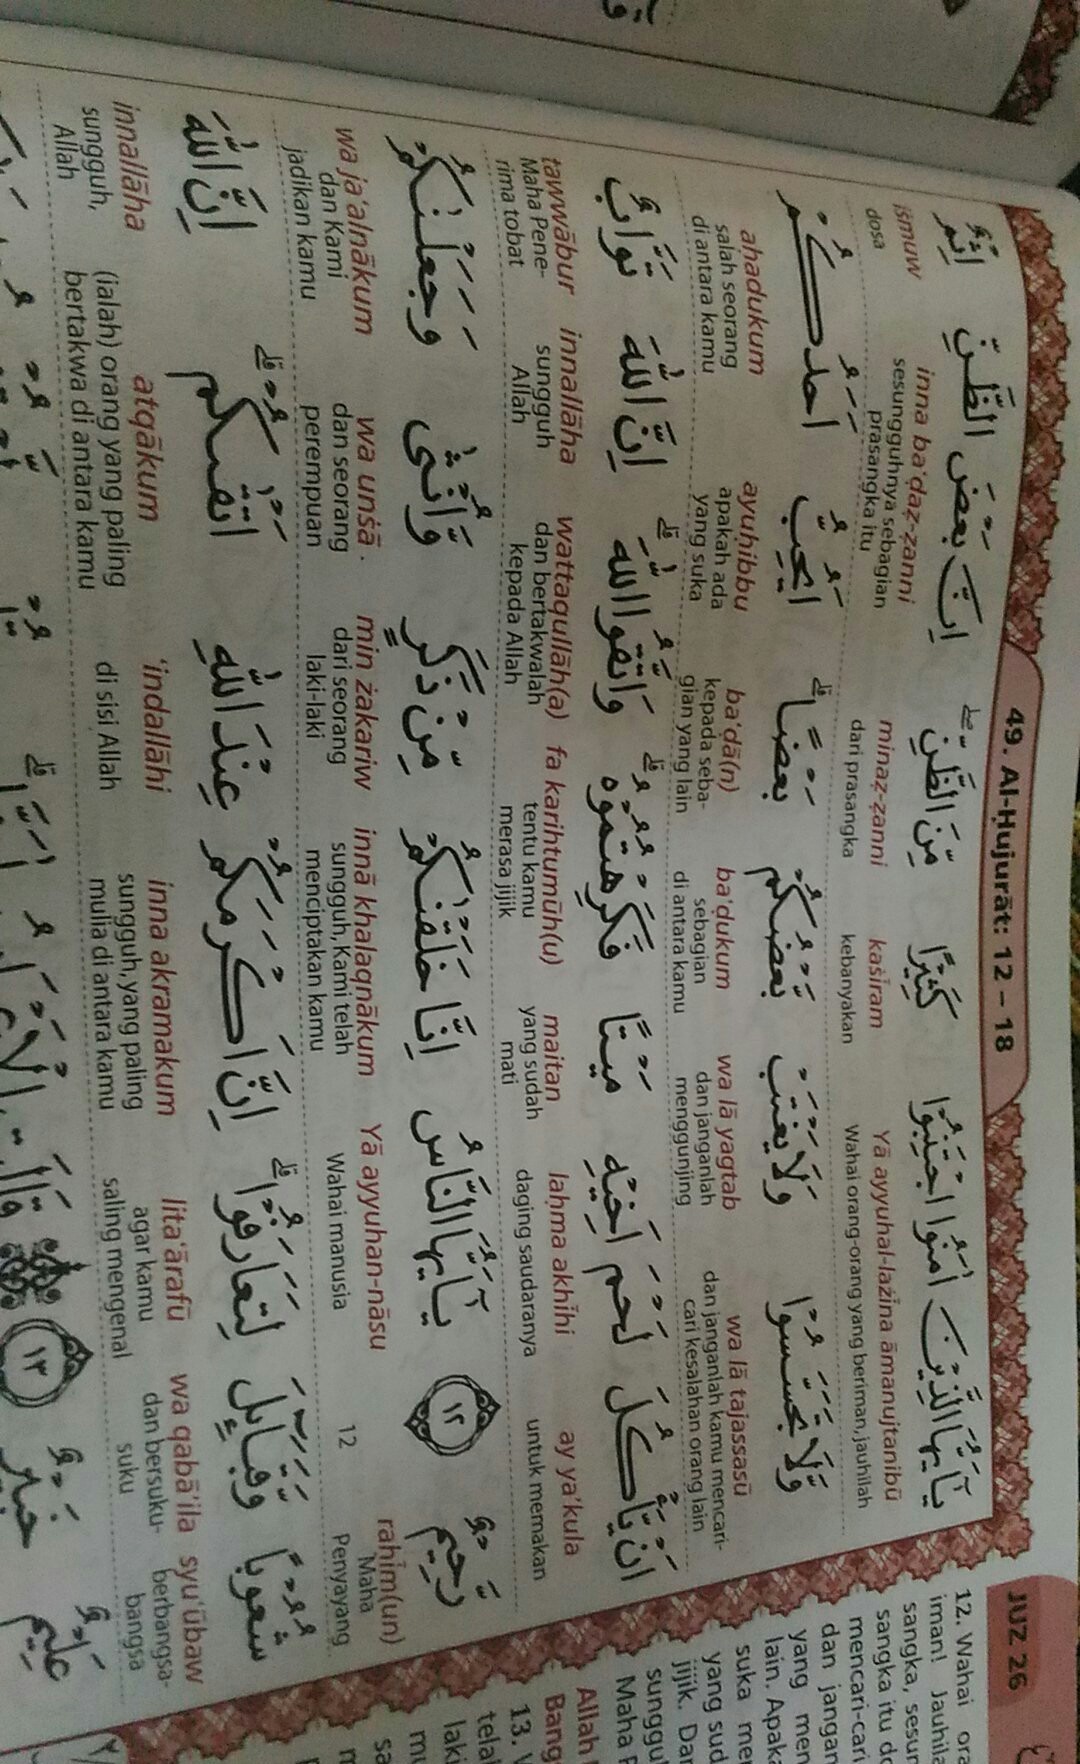 49. Al-Ḥujurāt: 12 – 18
JUZ 26
يٰٓاَيُّهَا الَّذِيْنَ اٰمَنُوا اجْتَنِبُوْا كَثِيْرًا مِّنَ الظَّنِّۖ اِنَّ بَعْضَ الظَّنِّ اِثْمٌ
Yā ayyuhal-lażīna āmanujtanibū kaṡīram minaẓ-ẓanni inna ba'ḍaẓ-ẓanni iṡmuw
Wahai orang-orang yang beriman, jauhilah kebanyakan dari prasangka sesungguhnya sebagian prasangka itu dosa
وَّلَا تَجَسَّسُوْا وَلَا يَغْتَبْ بَّعْضُكُمْ بَعْضًاۗ اَيُحِبُّ اَحَدُكُمْ
wa lā tajassasū wa lā yagtab ba'ḍukum ba'ḍā(n) ayuḥibbu aḥadukum
dan janganlah kamu mencari-cari kesalahan orang lain dan janganlah menggunjing sebagian di antara kamu kepada sebagian yang lain apakah ada yang suka salah seorang di antara kamu
اَنْ يَّأْكُلَ لَحْمَ اَخِيْهِ مَيْتًا فَكَرِهْتُمُوْهُۗ وَاتَّقُوا اللّٰهَۗ اِنَّ اللّٰهَ تَوَّابٌ
ay ya'kula laḥma akhīhi maitan fa karihtumūh(u) wattaqullāh(a) innallāha tawwābur
untuk memakan daging saudaranya yang sudah mati tentu kamu merasa jijik dan bertakwalah kepada Allah sungguh Allah Maha Penerima tobat
رَّحِيْمٌ ١٢ يٰٓاَيُّهَا النَّاسُ اِنَّا خَلَقْنٰكُمْ مِّنْ ذَكَرٍ وَّاُنْثٰى وَجَعَلْنٰكُمْ
raḥīm(un) Yā ayyuhan-nāsu innā khalaqnākum min żakariw wa unṡā wa ja'alnākum
Maha Penyayang 12 Wahai manusia sungguh, Kami telah menciptakan kamu dari seorang laki-laki dan seorang perempuan dan Kami jadikan kamu
شُعُوْبًا وَّقَبَاۤىِٕلَ لِتَعَارَفُوْاۗ اِنَّ اَكْرَمَكُمْ عِنْدَ اللّٰهِ اَتْقٰىكُمْۗ اِنَّ اللّٰهَ
syu'ūbaw wa qabā'ila lita'ārafū inna akramakum 'indallāhi atqākum innallāha
berbangsa-bangsa dan bersuku-suku agar kamu saling mengenal sungguh, yang paling mulia di antara kamu di sisi Allah (ialah) orang yang paling bertakwa di antara kamu sungguh, Allah
عَلِيْمٌ خَبِيْرٌ ١٣ قَالَتِ
12. Wahai or
iman! Jauhila
sangka, sesu
sangka itu do
mencari-cari
dan jangan
yang men
lain. Apaka
suka me
yang sud
jijik. Da
sunggu
Maha P
Allah
Bang
13. W
telal
laki
mu
sa